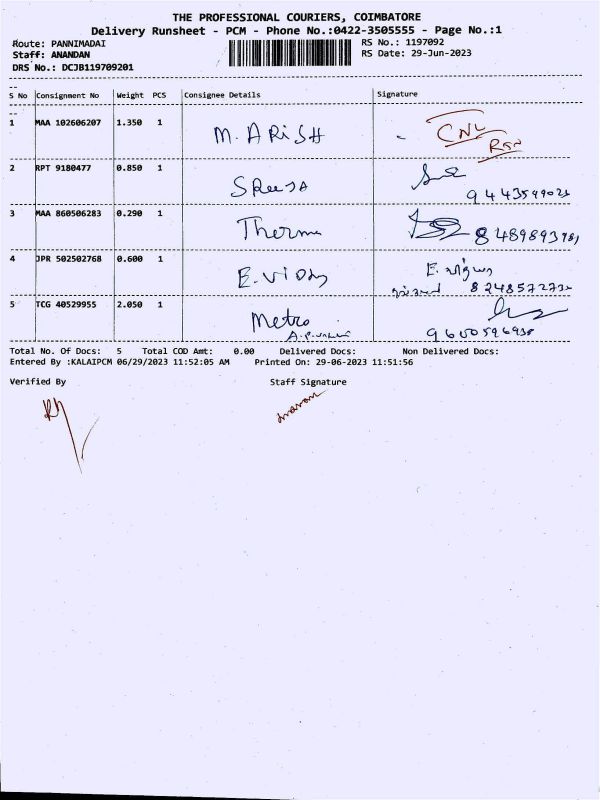 THE PROFESSIONAL COURIERS, COIMBATORE
Delivery Runsheet - PCM - Phone No.:0422-3505555 - Page No.:1
Route: PANNIMADAI RS No.: 1197092
Staff: ANANDAN RS Date: 29-Jun-2023
DRS No.: DCJB119709201
S No Consignment No Weight PCS Consignee Details Signature
1 MAA 102606207 1.350 1 M. ARISH CNL
2 RPT 9180477 0.850 1
3 MAA 860506283 0.290 1 Therma
4 JPR 502502768 0.600 1 E.
5 TCG 40529955 2.050 1 Metro
Total No. Of Docs: 5 Total COD Amt: 0.00 Delivered Docs: Non Delivered Docs:
Entered By :KALAIPCM 06/29/2023 11:52:05 AM Printed On: 29-06-2023 11:51:56
Verified By Staff Signature